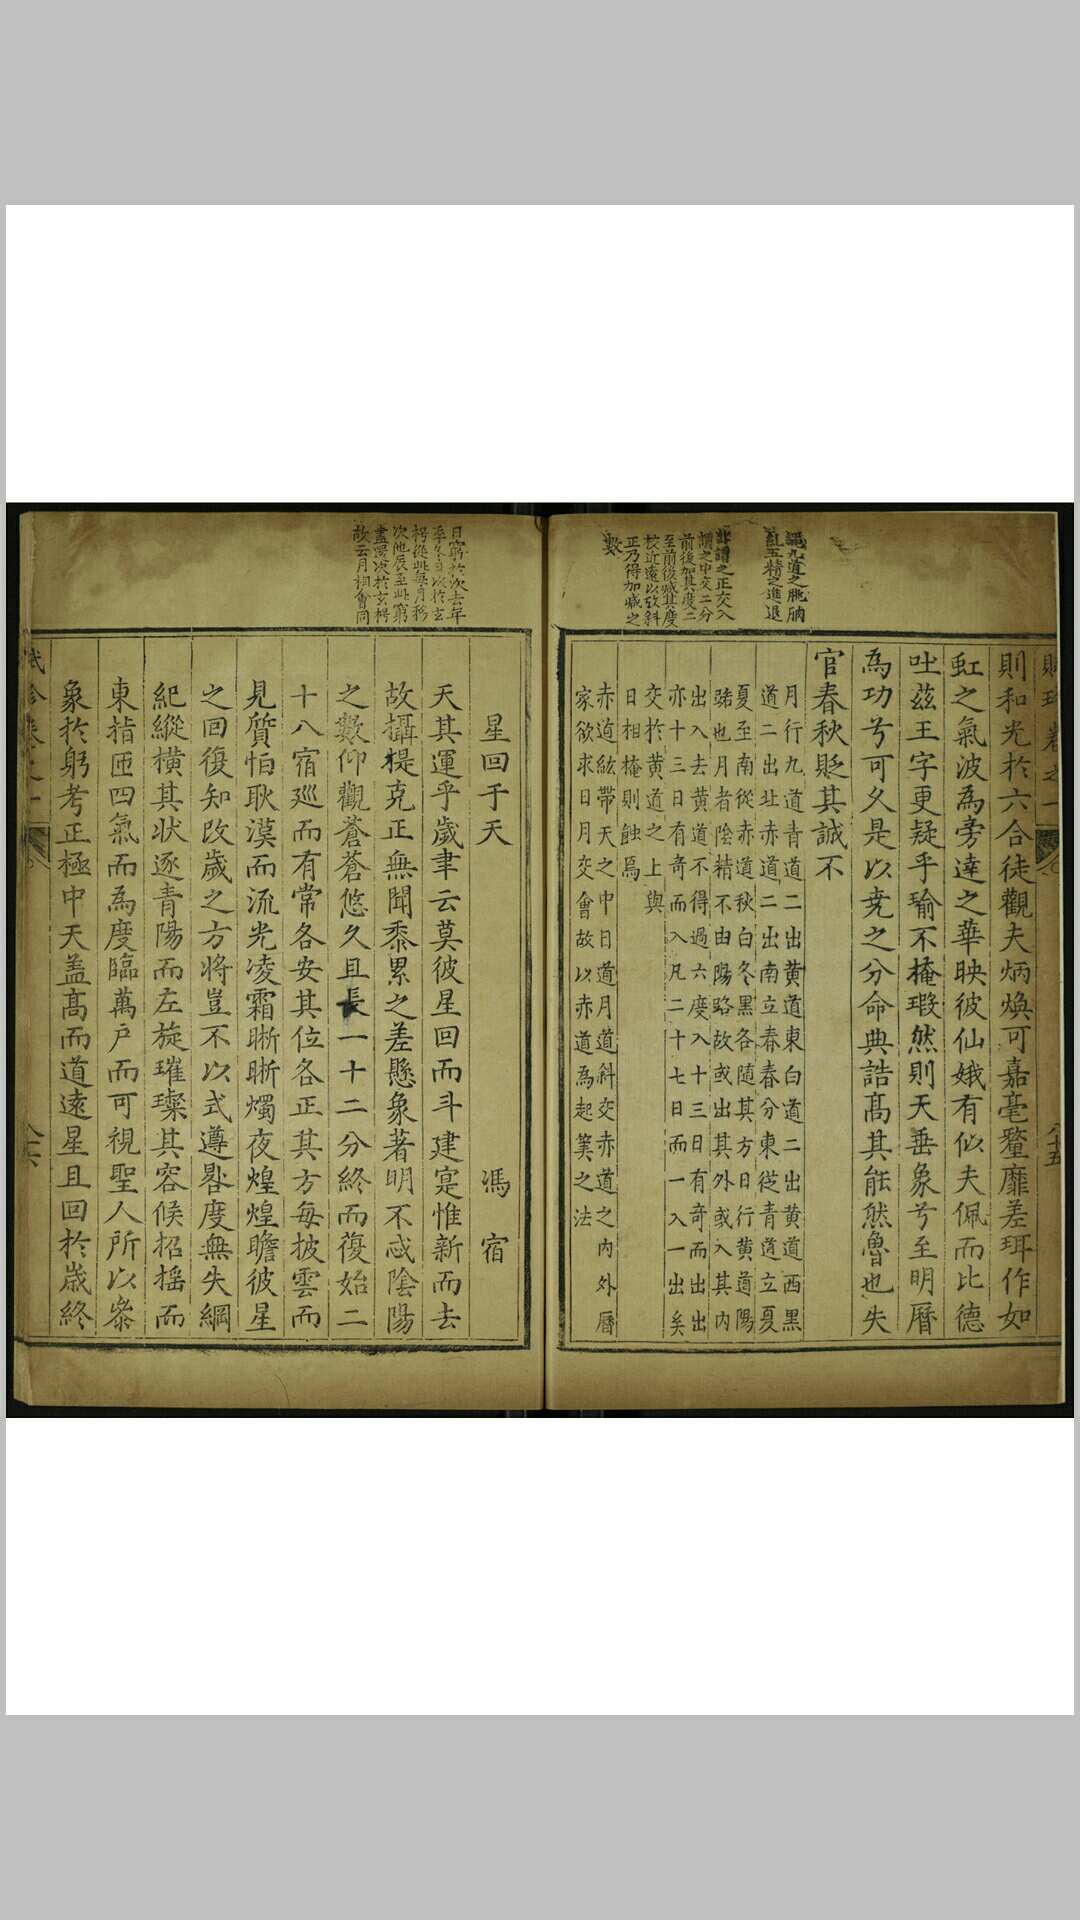 則和光於六合徒觀夫炳煥可嘉毫釐靡差珥作如
虹之氣波為旁達之華映彼仙娥有似夫佩而比德
吐茲王字更疑乎瑜不掩瑕然則天垂象兮至明曆
為功兮可久是以堯之分命典誥髙其能然魯也失
官春秋貶其誠不
月行九道青道二出黄道東白道二出黄道西黑
道二出北赤道二出南立春春分東從青道立夏
夏至南從赤道秋白冬黑各随其方日行黄道陽
路也月者陰精不由陽路故或出其外或入其内
出入去黄道不得過六度入十三日有奇而出出
亦十三日有奇而入凡二十七日而一入一出矣
交於黄道之上與
日相掩則蝕焉
赤道絃帶天之中日道月道斜交赤道之内外曆
家欲求日月交會故以赤道為起筭之法
謂九道之朓朒
乱五精之進退
謂之正交入
謂之中交二分
前後加其度二
至前後减其度
校近遠以攷斜
正乃得加减之
數
星回于天 馮宿
天其運乎歲聿云莫彼星回而斗建寔惟新而去
故攝提克正無聞黍累之差懸象著明不忒陰陽
之數仰觀蒼蒼悠久且長一十二分終而復始二
十八宿巡而有常各安其位各正其方每披雲而
見質怕耿漠而流光凌霜晣晣燭夜煌煌瞻彼星
之回復知改歲之方將豈不以式遵晷度無失綱
紀縱横其狀逐青陽而左旋璀璨其容候招揺而
東指匝四氣而為度臨萬户而可視聖人所以叅
象於躬考正極中天盖髙而道逺星且回於歲終
日窮於次去年
季冬日次於玄
枵從此每月移
次他辰至此窮
盡還次於玄枵
故云月相會同